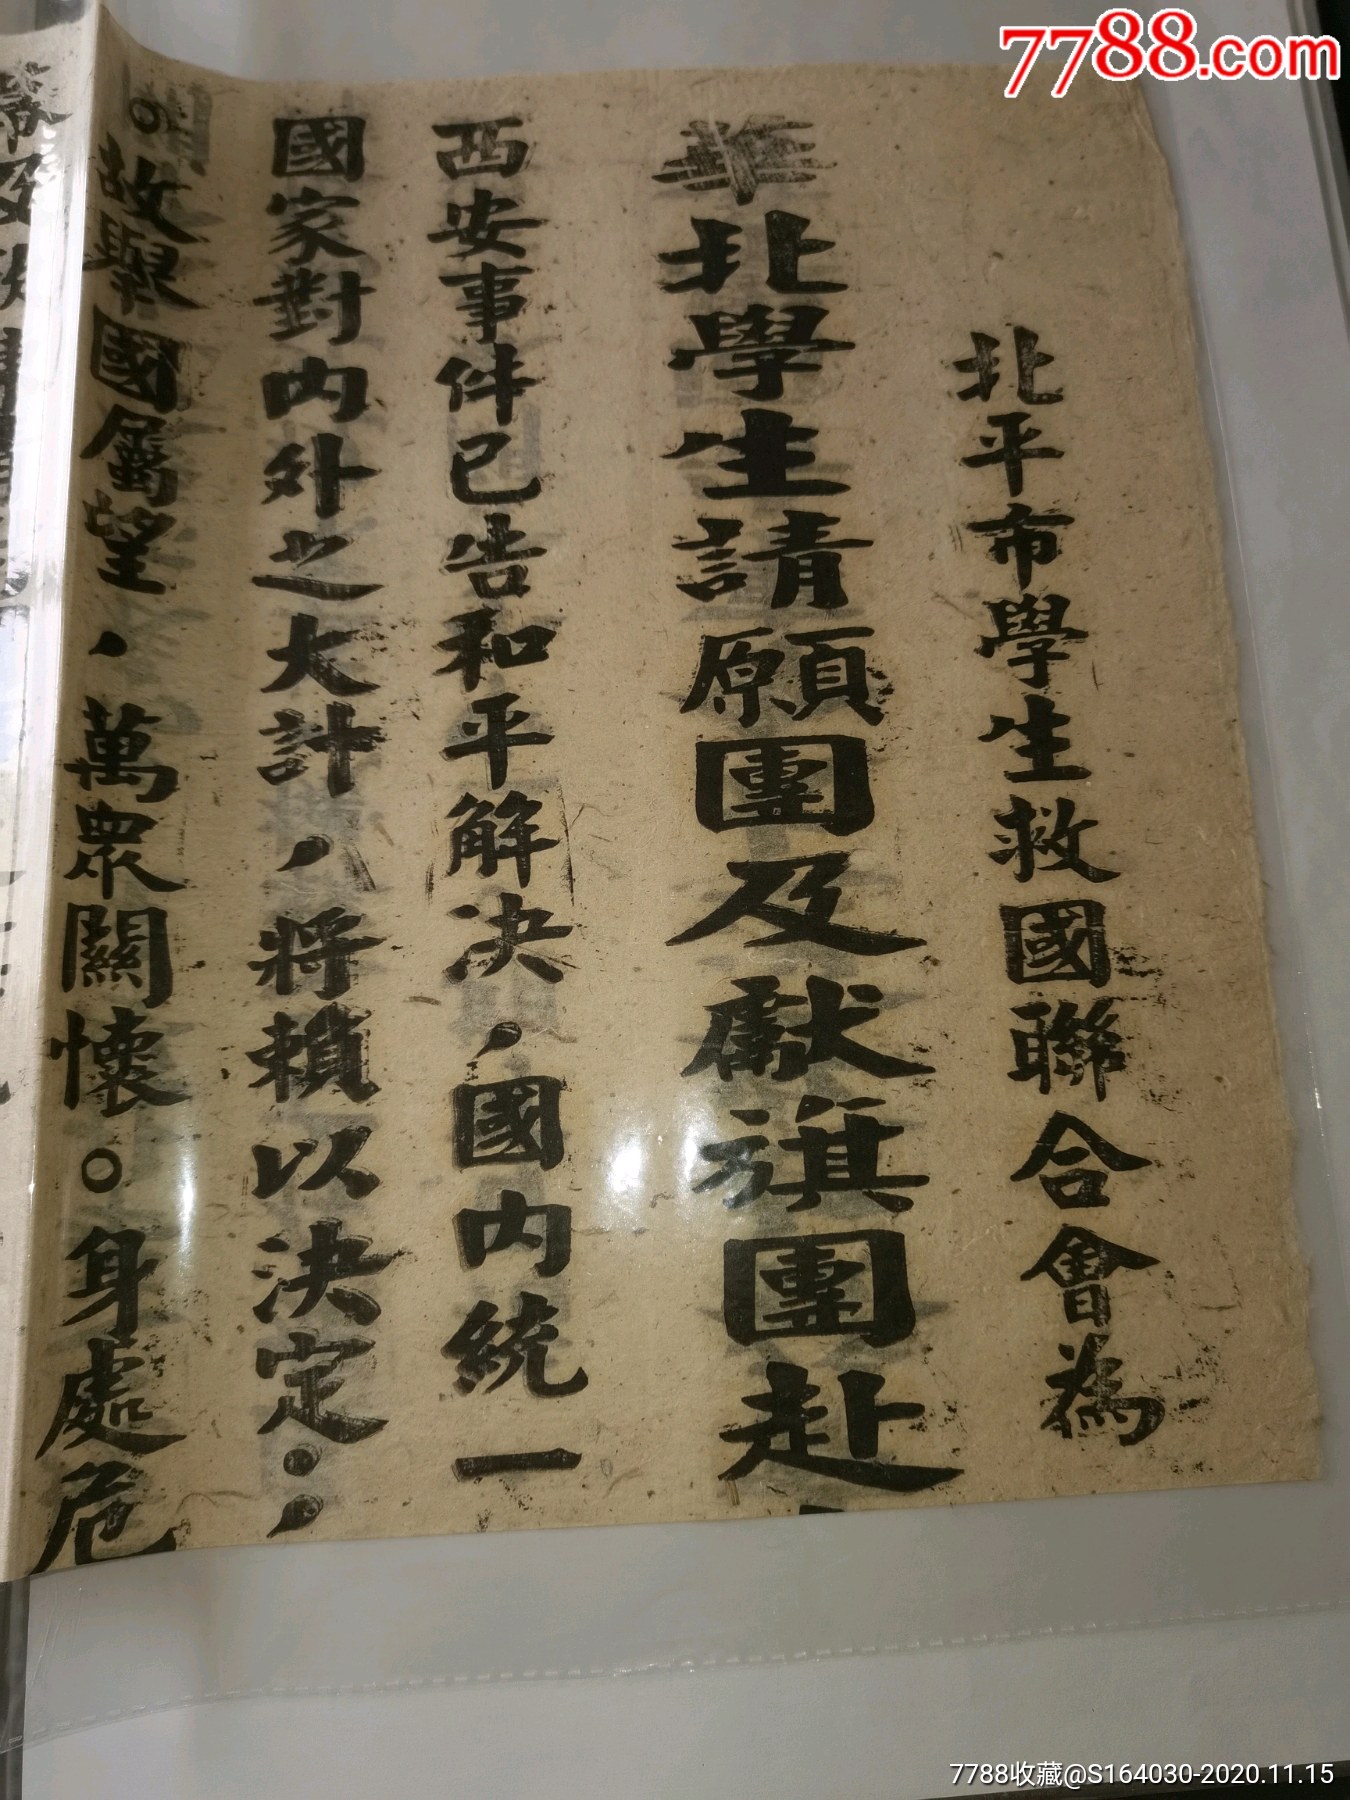 7788.com
北平市學生救國聯合會為
華北學生請願團及獻旗團赴
西安事件已告和平解决，國内統一
國家對内外之大計，將賴以決定；
。故舉國屬望，萬眾關懷。身處危
7788收藏@S164030-2020.11.15